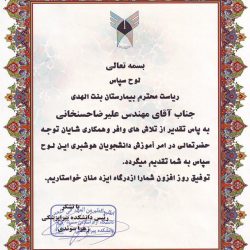 بسمه تعالی
لوح سپاس
ریاست محترم بیمارستان بنت الهدی
جناب آقای مهندس علیرضاحسنخانی
به پاس تقدیر از تلاش های وافر وهمکاری شایان توجه
حضرتعالی در امر آموزش دانشجویان هوشبری این لوح
سپاس به شما تقدیم میگردد.
توفیق روز افزون شمارا ازدرگاه ایزد منان خواستاریم.
با تشکر
رئیس دانشکده پیراپزشکی